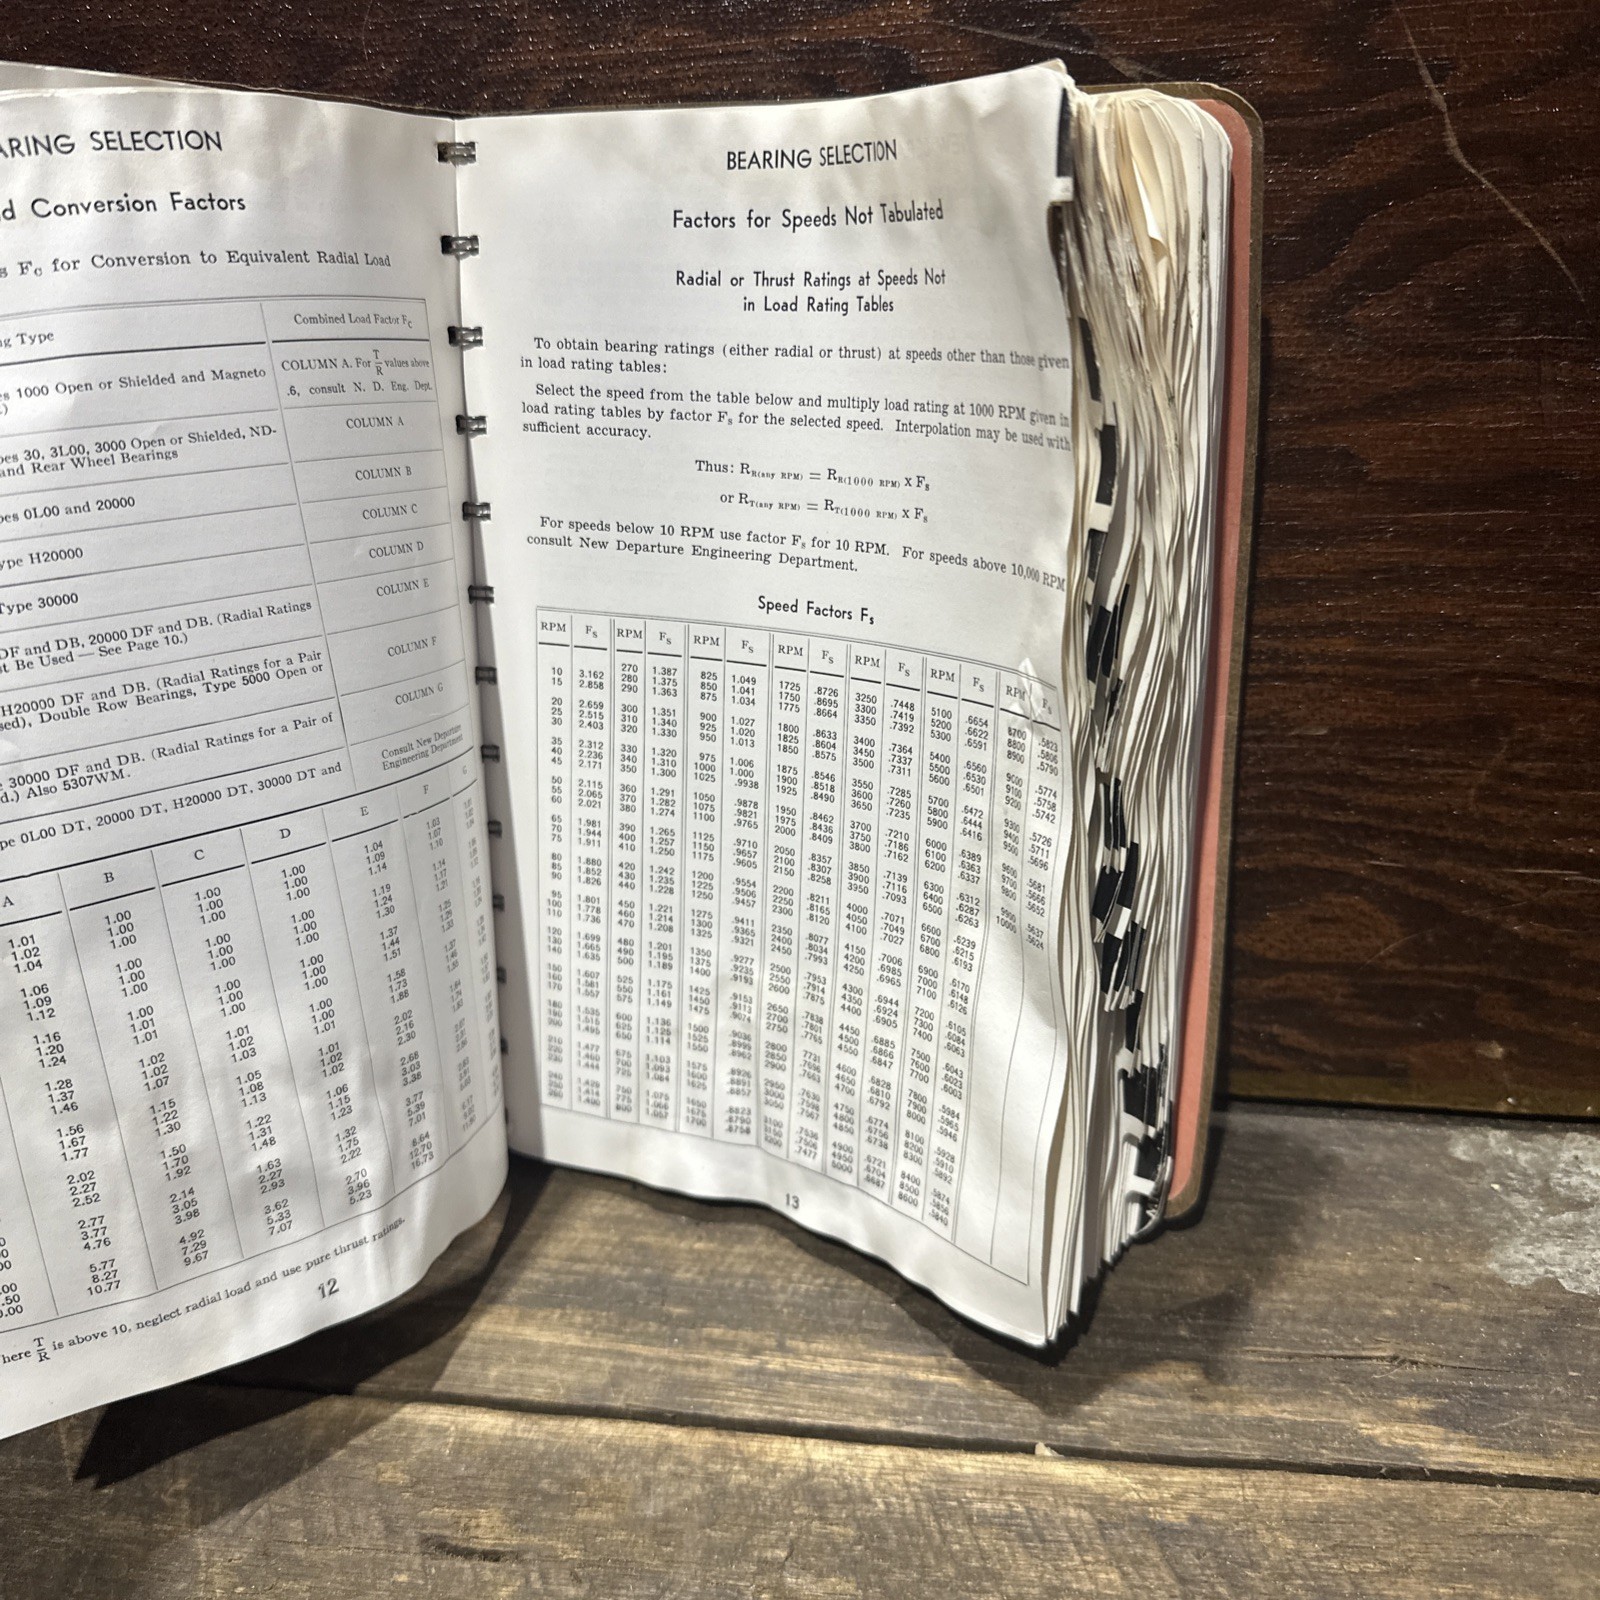 ARING SELECTION
d Conversion Factors
s Fc for Conversion to Equivalent Radial Load
g Type
Combined Load Factor Fc
es 1000 Open or Shielded and Magneto
COLUMN A. For T/R values above
.6, consult N. D. Eng. Dept.
pes 30, 3L00, 3000 Open or Shielded, ND-
and Rear Wheel Bearings
COLUMN A
pes 0L00 and 20000
COLUMN B
ype H20000
COLUMN C
Type 30000
COLUMN D
DF and DB, 20000 DF and DB. (Radial Ratings
t Be Used — See Page 10.)
COLUMN E
H20000 DF and DB. (Radial Ratings for a Pair
sed), Double Row Bearings, Type 5000 Open or
COLUMN F
30000 DF and DB. (Radial Ratings for a Pair of
d.) Also 5307WM.
COLUMN G
pe 0L00 DT, 20000 DT, H20000 DT, 30000 DT and
Consult New Departure
Engineering Department
A B C D E F G
1.01 1.00 1.00 1.00 1.04 1.03
1.02 1.00 1.00 1.00 1.09 1.07
1.04 1.00 1.00 1.00 1.14 1.10
1.06 1.00 1.00 1.00 1.19
1.09 1.00 1.00 1.00 1.24
1.12 1.00 1.00 1.00 1.30
1.16 1.00 1.00 1.00 1.37
1.20 1.01 1.00 1.00 1.44
1.24 1.01 1.00 1.00 1.51
1.28 1.02 1.01 1.00 1.58
1.37 1.02 1.02 1.00 1.73
1.46 1.07 1.03 1.01 1.88
1.56 1.15 1.05 1.01 2.02
1.67 1.22 1.08 1.02 2.16
1.77 1.30 1.13 1.02 2.30
2.02 1.50 1.22 1.06 2.66
2.27 1.70 1.31 1.15 3.03
2.52 1.92 1.48 1.23 3.38
2.77 2.14 1.63 1.32 3.77
3.77 3.05 2.27 1.75 5.39
4.76 3.98 2.93 2.22 7.01
5.77 4.92 3.62 2.70 8.64
8.27 7.29 5.33 3.96 12.70
10.77 9.67 7.07 5.23 16.73
here T/R is above 10, neglect radial load and use pure thrust ratings.
12
BEARING SELECTION
Factors for Speeds Not Tabulated
Radial or Thrust Ratings at Speeds Not
in Load Rating Tables
To obtain bearing ratings (either radial or thrust) at speeds other than those given
in load rating tables:
Select the speed from the table below and multiply load rating at 1000 RPM given in
load rating tables by factor Fs for the selected speed. Interpolation may be used with
sufficient accuracy.
Thus: RR(any RPM) = RR(1000 RPM) x Fs
or RT(any RPM) = RT(1000 RPM) x Fs
For speeds below 10 RPM use factor Fs for 10 RPM. For speeds above 10,000 RPM
consult New Departure Engineering Department.
Speed Factors Fs
RPM Fs RPM Fs RPM Fs RPM Fs RPM Fs RPM Fs RPM Fs
10 3.162 270 1.387 825 1.049 1725 .8726 3250 .7448 5100 .6654 8700 .5823
15 2.858 280 1.375 850 1.041 1750 .8695 3300 .7419 5200 .6622 8800 .5806
290 1.363 875 1.034 1775 .8664 3350 .7392 5300 .6591 8900 .5790
20 2.659 300 1.351 900 1.027 1800 .8633 3400 .7364 5400 .6560 9000 .5774
25 2.515 310 1.340 925 1.020 1825 .8604 3450 .7337 5500 .6530 9100 .5758
30 2.403 320 1.330 950 1.013 1850 .8575 3500 .7311 5600 .6501 9200 .5742
35 2.312 330 1.320 975 1.006 1875 .8546 3550 .7285 5700 .6472 9300 .5726
40 2.236 340 1.310 1000 1.000 1900 .8518 3600 .7260 5800 .6444 9400 .5711
45 2.171 350 1.300 1025 .9938 1925 .8490 3650 .7235 5900 .6416 9500 .5696
50 2.115 360 1.291 1050 .9878 1950 .8462 3700 .7210 6000 .6389 9600 .5681
55 2.065 370 1.282 1075 .9821 1975 .8436 3750 .7186 6100 .6363 9700 .5666
60 2.021 380 1.274 1100 .9765 2000 .8409 3800 .7162 6200 .6337 9800 .5652
65 1.981 390 1.265 1125 .9710 2050 .8357 3850 .7139 6300 .6312 9900 .5637
70 1.944 400 1.257 1150 .9657 2100 .8307 3900 .7116 6400 .6287 10000 .5624
75 1.911 410 1.250 1175 .9605 2150 .8258 3950 .7093 6500 .6263
80 1.880 420 1.242 1200 .9554 2200 .8211 4000 .7071 6600 .6239
85 1.852 430 1.235 1225 .9506 2250 .8165 4050 .7049 6700 .6215
90 1.826 440 1.228 1250 .9457 2300 .8120 4100 .7027 6800 .6193
95 1.801 450 1.221 1275 .9411 2350 .8077 4150 .7006 6900 .6170
100 1.778 460 1.214 1300 .9365 2400 .8034 4200 .6985 7000 .6148
110 1.736 470 1.208 1325 .9321 2450 .7993 4250 .6965 7100 .6126
120 1.699 480 1.201 1350 .9277 2500 .7953 4300 .6944 7200 .6105
130 1.665 490 1.195 1375 .9235 2550 .7914 4350 .6924 7300 .6084
140 1.635 500 1.189 1400 .9193 2600 .7875 4400 .6905 7400 .6063
150 1.607 525 1.175 1425 .9153 2650 .7838 4450 .6885 7500 .6043
160 1.581 550 1.161 1450 .9113 2700 .7801 4500 .6866 7600 .6023
170 1.557 575 1.149 1475 .9074 2750 .7765 4550 .6847 7700 .6003
13